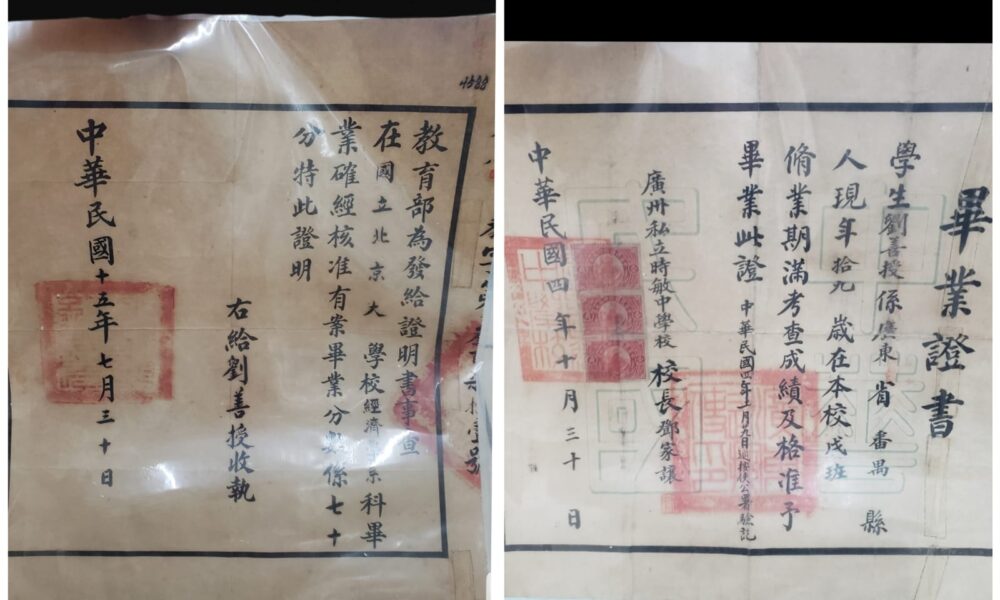 教育部為發給證明書事查
在國立北京大學校經濟學系科畢
業確經核准有案畢業分數係七十
分特此證明
右給劉善授收執
中華民國十五年七月三十日
畢業證書
學生劉善授係廣東省番禺縣
人現年拾九歲在本校戊班
脩業期滿考查成績及格准予
畢業此證
中華民國四年十一月九日巡按使公署驗訖
廣州私立時敏中學校校長鄧家讓
中華民國四年十月三十日